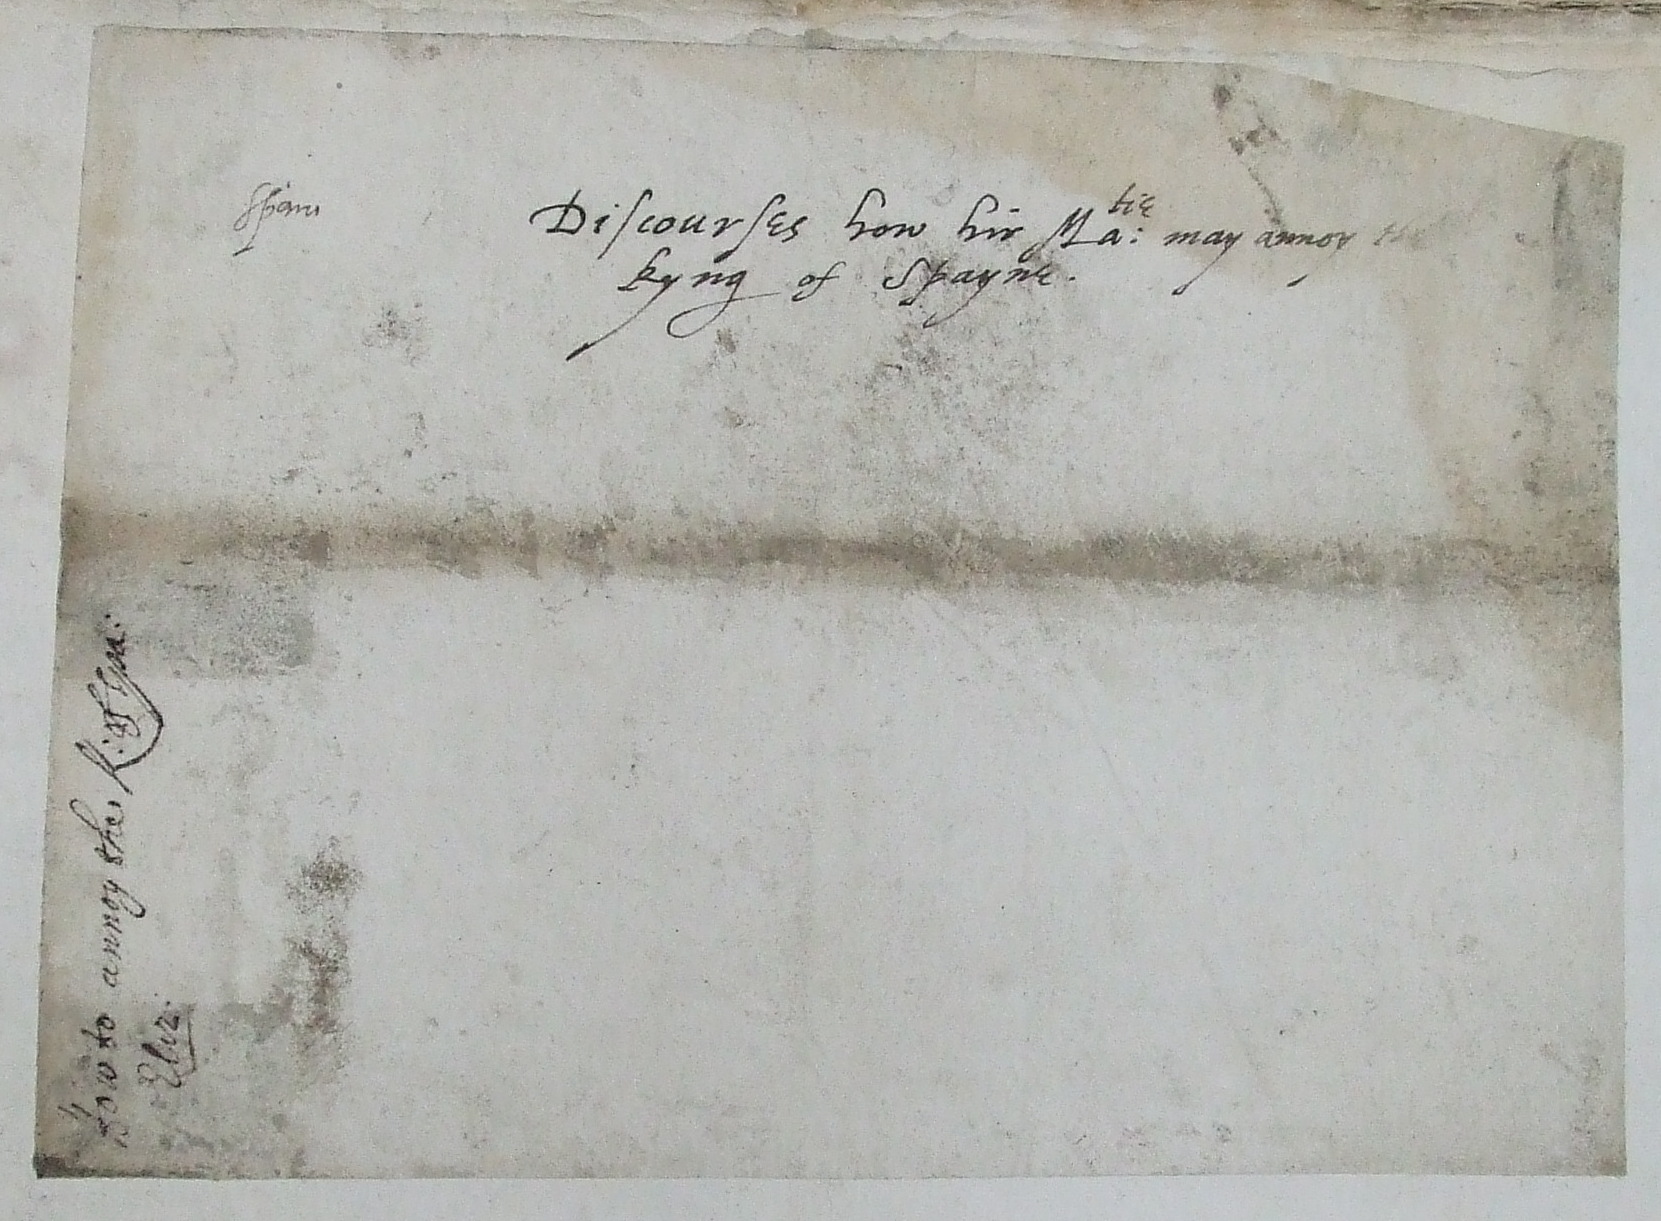 Spain
Discourses how hir Ma:tie may annoy the
kyng of Spayne.
How to annoy the K: of Spa:
Eliz: